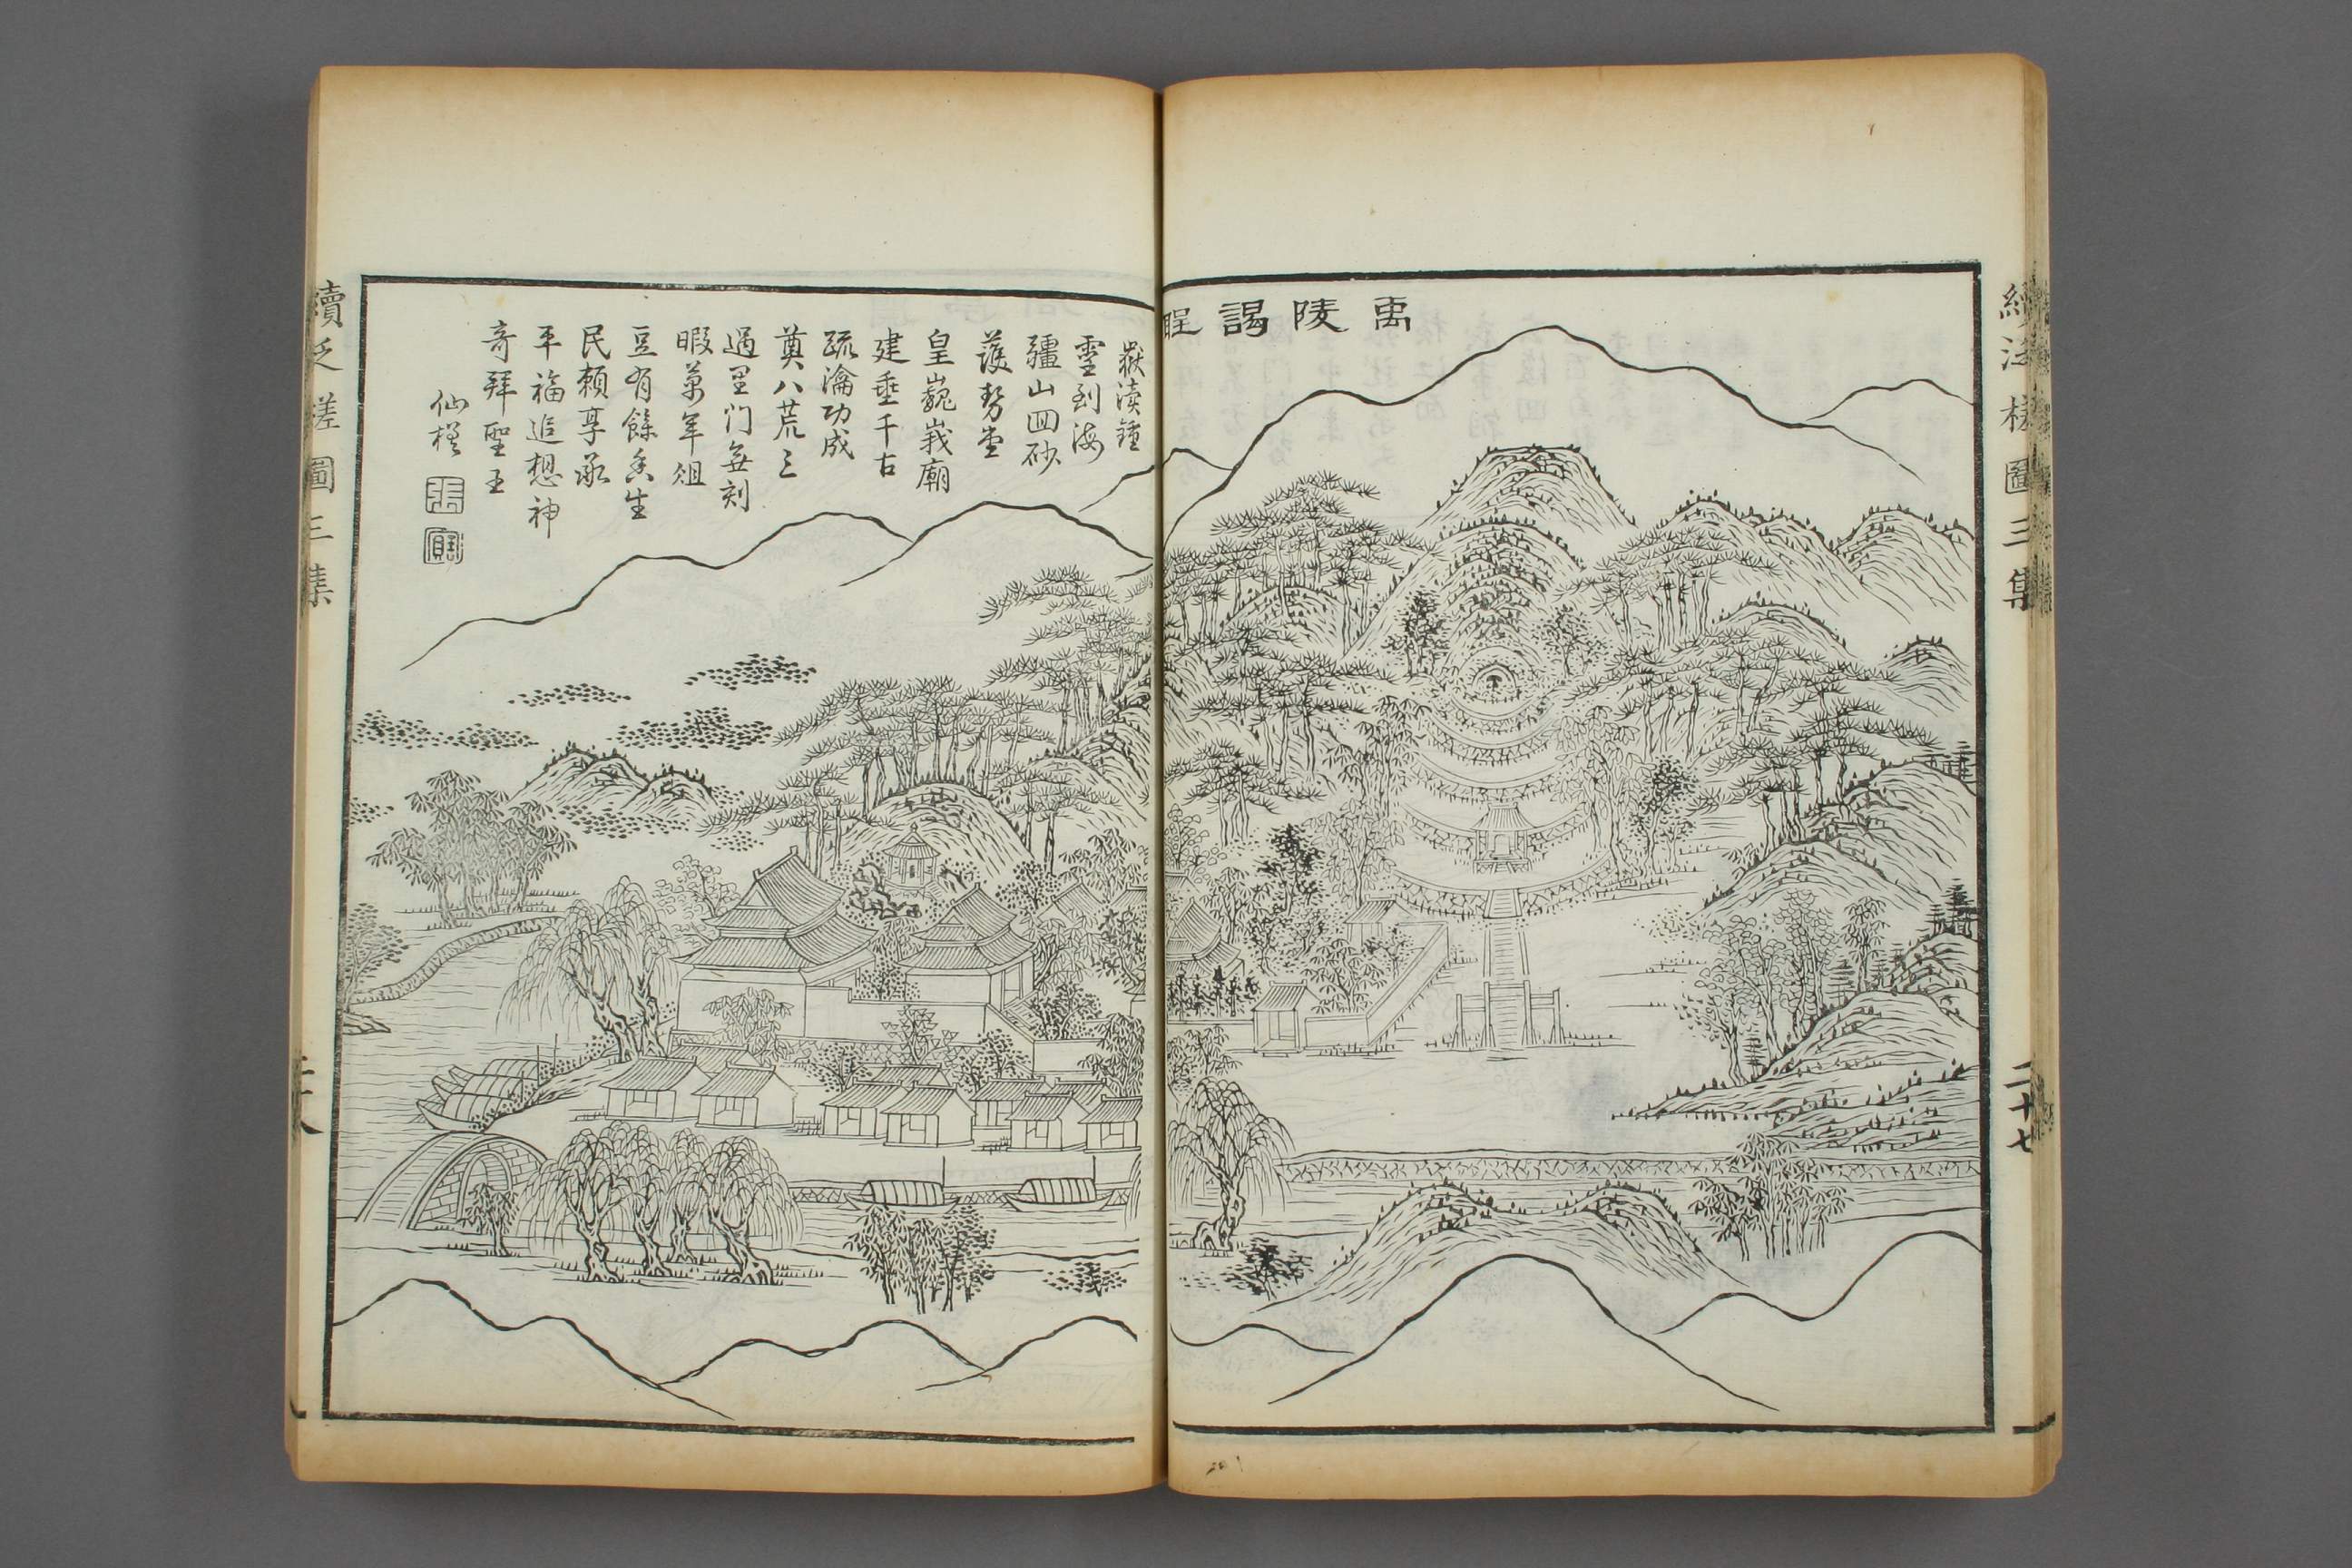 續泛槎圖三集
二十七
禹陵謁聖
嶽瀆鍾
靈到海
疆山囬砂
護勢堂
皇巍峩廟
建垂千古
疏瀹功成
奠八荒三
過里门無刻
暇萬年俎
豆有餘香生
民賴享承
平福追想神
奇拜聖王
仙槎
張
寶
續泛槎圖三集
二十八